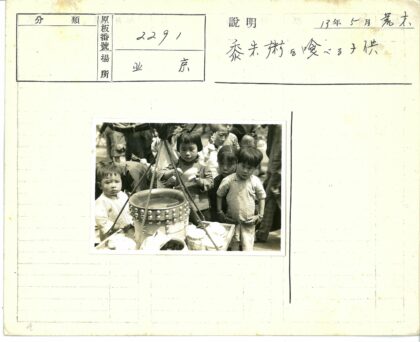 分類
原板番號 2291
場所 北京
説明
13年5月 荒木
黍朱術を喰べる子供